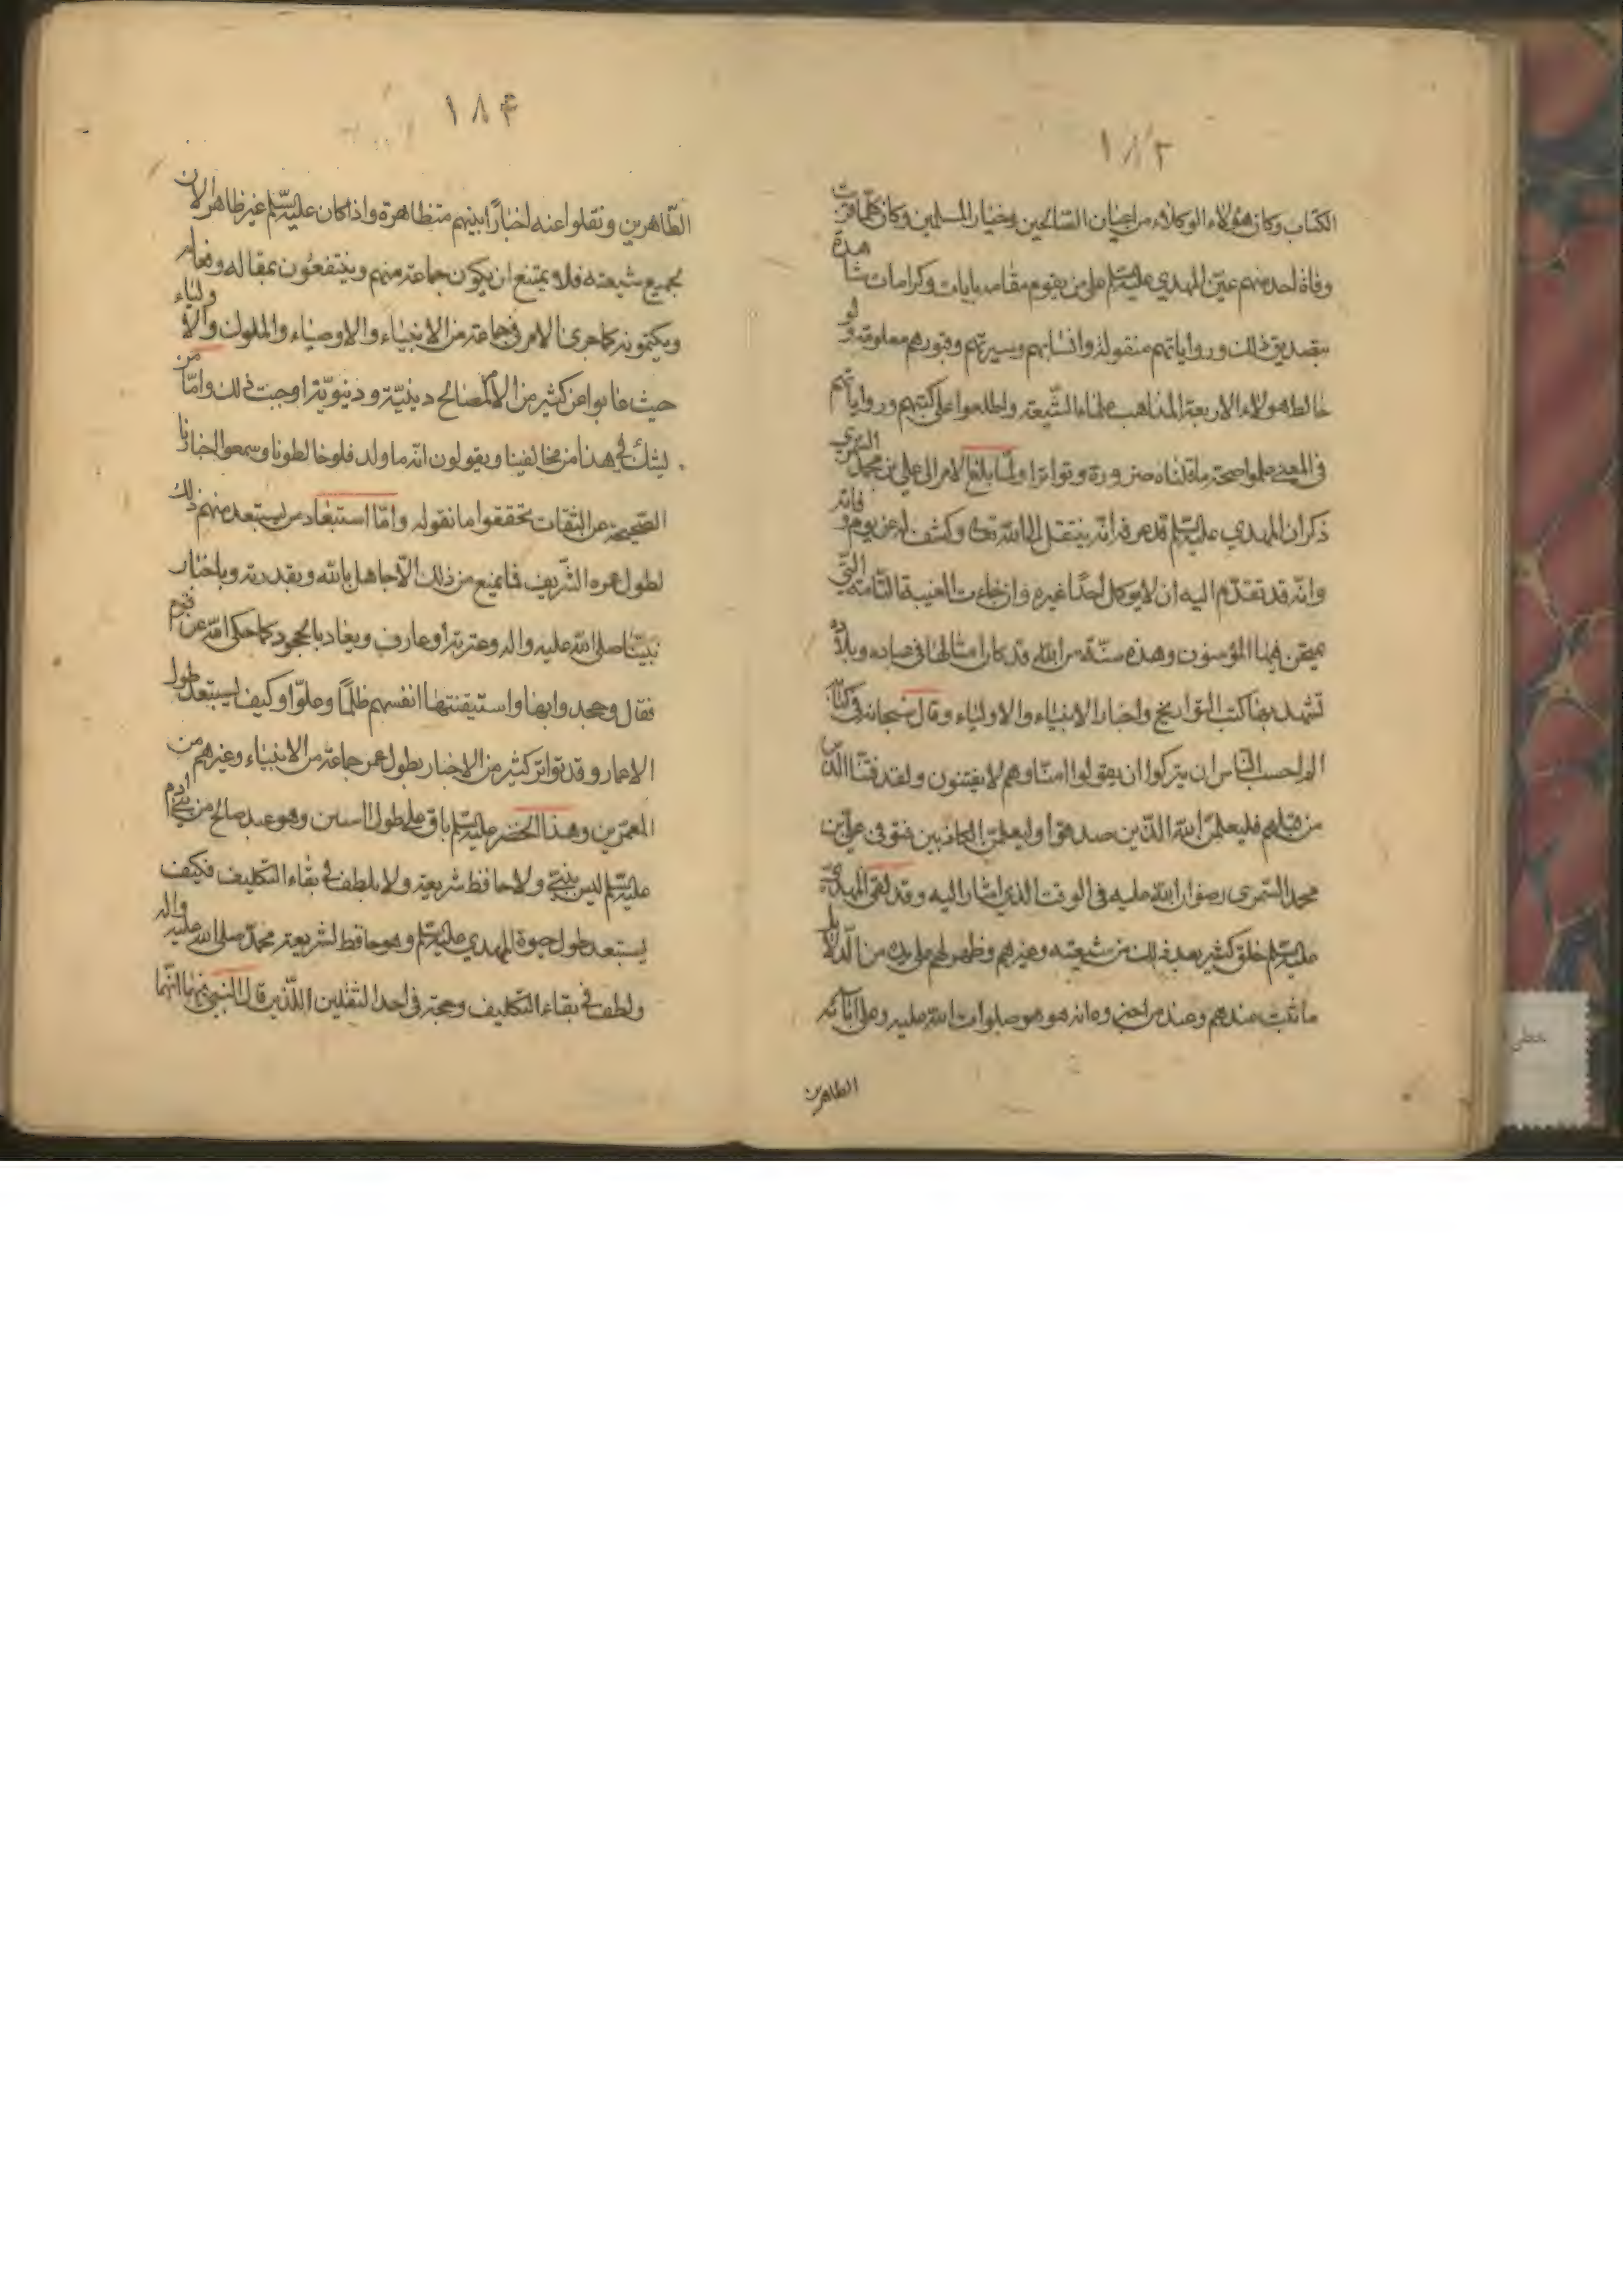 ١٨٣
الكتاب وكان هؤلاء الوكلاء من اعيان الصالحين وخيار المسلمين وكان كلما قربت
وفاة احد منهم عين المهدي عليه السلم على من يقوم مقامه بايات وكرامات شاهدة
بتصديق ذلك ورواياتهم منقولة وانسابهم وسيرتهم وقبورهم معلومة ولو
خالط هولاء الاربعة المذاهب علماء الشيعة واطلعوا على كتبهم ورواياتهم
في المعنى علموا صحة ما قلناه ضرورة وتواترا ولما بلغ الامر الى علي بن محمد السمري
ذكر ان المهدي عليه السلم قد عرفه انه ينتقل الى الله تعالى وكشف له عن يوم وفاته
وانه قد تقدم اليه ان لا يوكل احدا غيره وان جاءت الغيبة التامة التي
يمتحن فيها المؤمنون وهذه سنة من الله قد كان امثالها في عباده وبلاده
تشهد بها كتب التواريخ واخبار الانبياء والاولياء وقال سبحانه في كتابه
الم احسب الناس ان يتركوا ان يقولوا امنا وهم لا يفتنون ولقد فتنا الذين
من قبلهم فليعلمن الله الذين صدقوا وليعلمن الكاذبين فتوفي علي بن
محمد السمري رضوان الله عليه في الوقت الذي اشار اليه وقد لقي المهدي
عليه السلم خلق كثير بعد ذلك من شيعته وغيرهم وظهر لهم على يده من الدلايل
ما ثبت عندهم وعند من اخبروه انه هو هو صلوات الله عليه وعلى ابائه
الطاهرين
١٨۴
الطاهرين ونقلوا عنه اخبارا بينهم متظاهرة واذا كان عليه السلم غير ظاهر الان
لجميع شيعته فلا يمتنع ان يكون جماعة منهم وينتفعون بمقاله وفعاله
ويكتمونه كما جرى الامر في جماعة من الانبياء والاوصياء والملوك والاولياء
حيث غابوا عن كثير من الامم لمصالح دينية ودنيوية اوجبت ذلك واما من
يشك في هذا من مخالفينا ويقولون انه ما ولد فلو خالطونا وسمعوا اخبارنا
الصحيحة عن الثقات تحققوا ما نقوله واما استبعاد من يستبعد منهم ذلك
لطول عمره الشريف فما يمنع من ذلك الا جاهل بالله وبقدرته وباخبار
نبينا صلى الله عليه واله وعترته او عارف ويعاند بالجحود كما حكى الله عن قوم
فقال وجحدوا بها واستيقنتها انفسهم ظلما وعلوا وكيف يستبعد طول
الاعمار وقد تواتر كثير من الاخبار بطول عمر جماعة من الانبياء وغيرهم من
المعمرين وهذا الخضر عليه السلم باق على طول السنين وهو عبد صالح من بني ادم
عليه السلم ليس بنبي ولا حافظ شريعة ولا بلطف في بقاء التكليف فكيف
يستبعد طول حيوة المهدي عليه السلم وهو حافظ لشريعة محمد صلى الله عليه واله
ولطف في بقاء التكليف وحجة في احد الثقلين اللذين قال النبي فيهما انهما